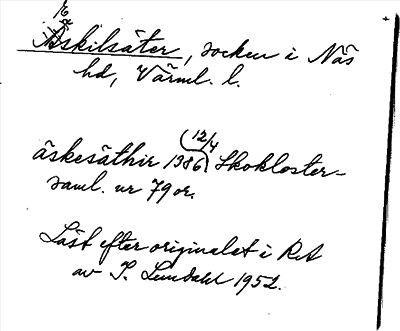 Äskilsäter, socken i Näs
hd, Värml. l.
äskesäthir 1386 (12/4) Skokloster-
saml. nr 79 or.
Läst efter originalet i RA
av I. Lundahl 1952.